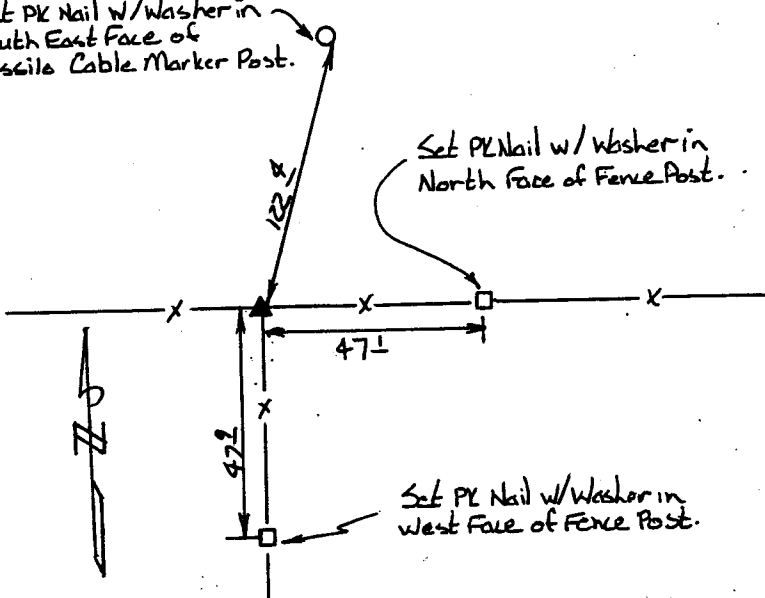 t PK Nail w/Washer in
uth East Face of
ssile Cable Marker Post.
Set PK Nail w/ Washer in
North Face of Fence Post.
122 4
X
X
X
47 1
X
47 9
N
Set PK Nail w/Washer in
West Face of Fence Post.